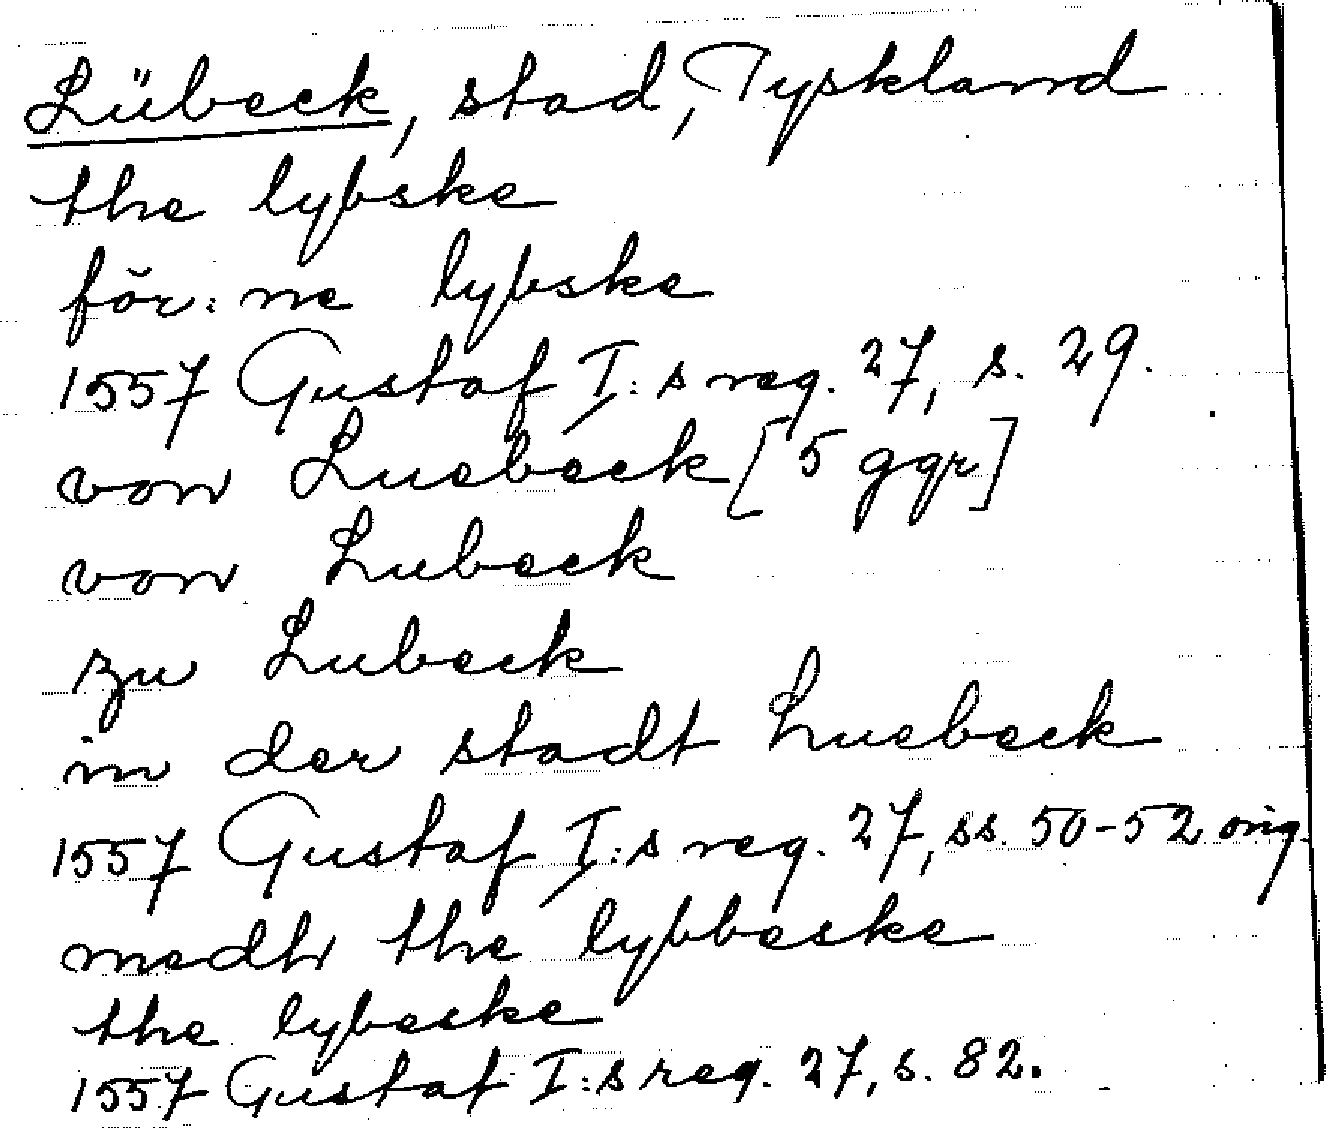 Lübeck, stad, Tyskland
the lybske
för:ne lybske
1557 Gustaf I:s reg. 27, s. 29.
von Luebeck [5 ggr]
von Lubeck
zu Lubeck
in der stadt Luebeck
1557 Gustaf I:s reg. 27, ss. 50-52 orig.
medh the lybbeske
the lybeske
1557 Gustaf I:s reg. 27, s. 82.